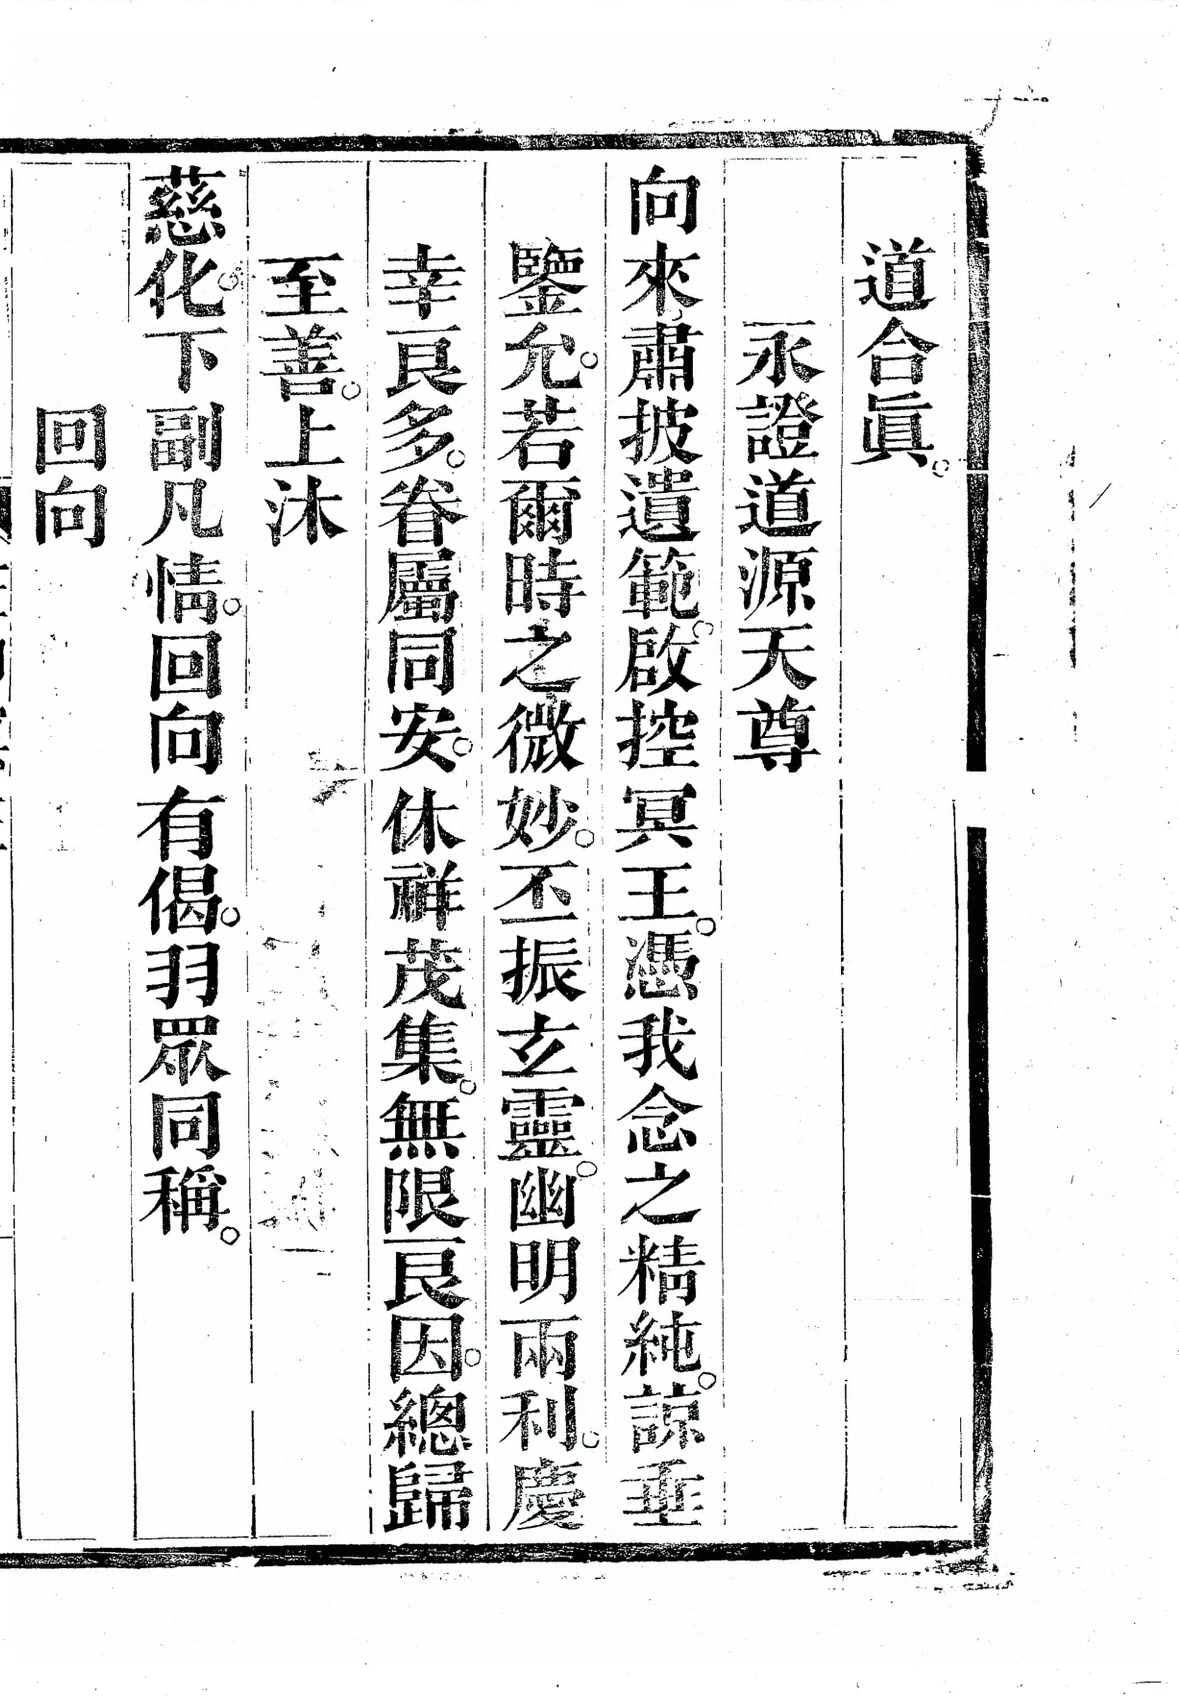 道合眞。
永證道源天尊
向來肅披遺範。啟控冥王。憑我念之精純。諒垂
鑒允。若爾時之微妙。丕振玄靈。幽明兩利。慶
幸良多。眷屬同安。休祥茂集。無限良因。總歸
至善。上沐
慈化。下副凡情。回向有偈。羽眾同稱。
回向